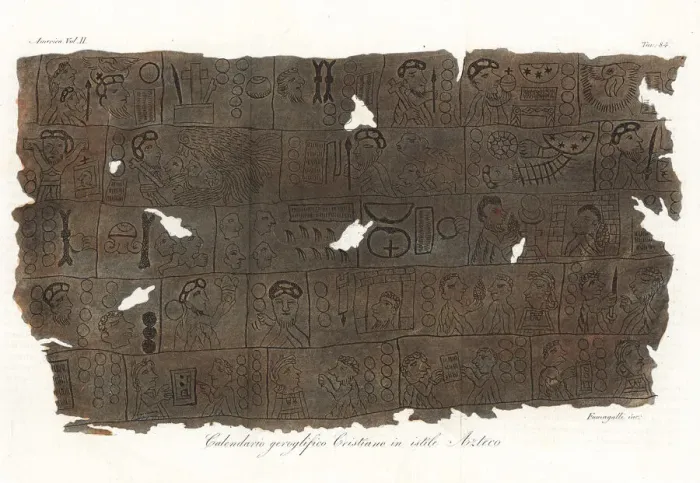 America Vol. II.
Tav. 84.
Fumagalli inc.
Calendario geroglifico Cristiano in istile Azteco